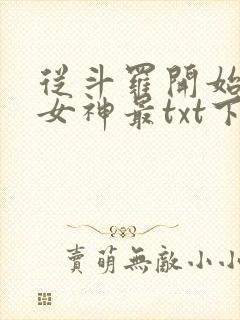 從斗羅開始
女神最txt下
賣萌無敵小小